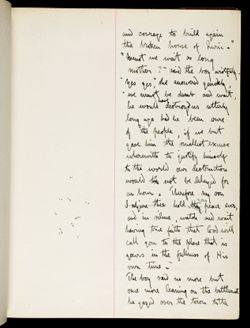 and courage to build again
the broken house of
"Must we wait so long
mother?" said the boy wistfully
"Yes yes," she answered quickly
"we must be dumb and wait
he would have destroyed us utterly
long ago had he been sure
of the people, if we but
gave him the smallest excuse
wherewith to justify himself
to the world our destruction
would not be delayed for
an hour. Therefore my son
I adjure thee hold thy peace ever
and in silence, watch and wait
having true faith that God will
call you to the place that is
yours in the fullness of His
own time."
The boy said no more but
once more leaning on the battlement
he gazed over the town